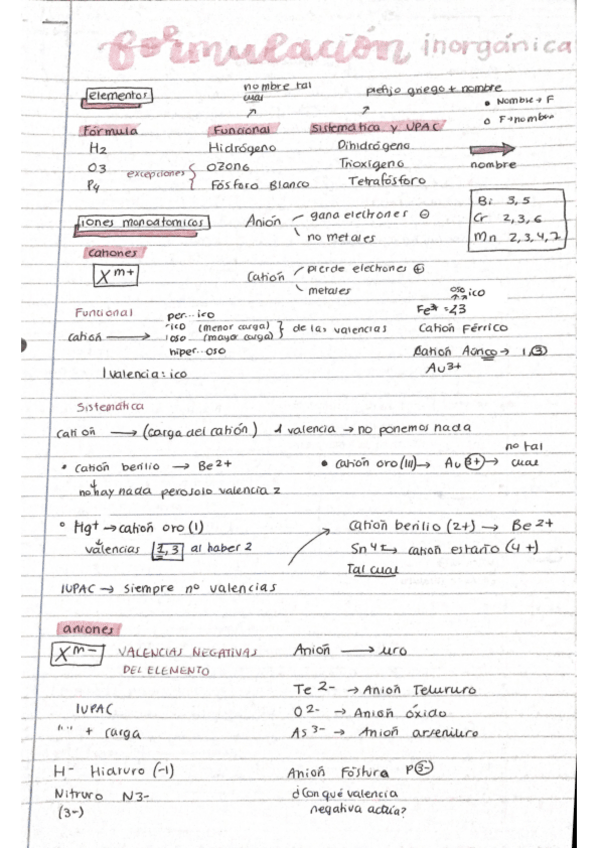 formulación inorgánica
elementos
nombre tal cual
prefijo griego + nombre
• Nombre → F
○ F → nombre
Fórmula Funcional Sistemática y UPAC
H2 Hidrógeno Dihidrógeno
nombre
O3 excepciones { Ozono Trioxígeno
P4 Fósforo Blanco Tetrafósforo
Bi 3, 5
Cr 2, 3, 6
Mn 2, 3, 4, 7
iones monoatomicos
Anión gana electrones ⊖
no metales
cationes
X m+
Catión pierde electrones ⊕
metales
Funcional
catión →
per... ico
ico (menor carga)
oso (mayor carga)
hiper... oso
} de las valencias
1 valencia: ico
oso ico
= 2,3
Catión Férrico
Catión → 1,③
Au3+
Sistemática
catión → (carga del catión) 1 valencia → no ponemos nada
• catión berilio → Be2+
no hay nada pero solo valencia 2
• catión oro (III) → Au 3+ → no tal cual
° Hg+ → catión oro (1)
valencias 1, 3 al haber 2
catión berilio (2+) → Be2+
Sn 4+ → catión estaño (4+)
Tal cual
IUPAC → siempre nº valencias
aniones
X m-
VALENCIAS NEGATIVAS DEL ELEMENTO
Anión → uro
Te 2- → Anión Telururo
IUPAC
"" + carga
O 2- → Anión óxido
As 3- → Anión arseniuro
H- Hidruro (-1)
Nitruro N3-
(3-)
Anión P 3-
¿Con qué valencia
negativa actúa?